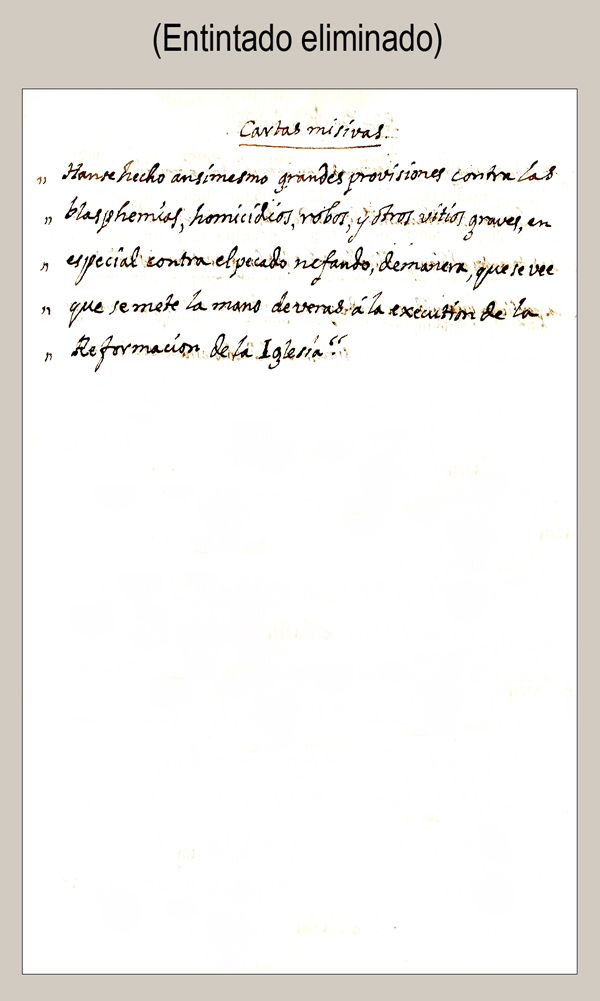 (Entintado eliminado)
Cartas misivas.
„ Hanse hecho ansimesmo grandes provisiones contra las
„ blasphemias, homicidios, robos, y otros vitios graves, en
„ especial contra el pecado nefando, demanera, que se vee
„ que se mete la mano deveras á la execution de la
„ Reformacion de la Iglesia “